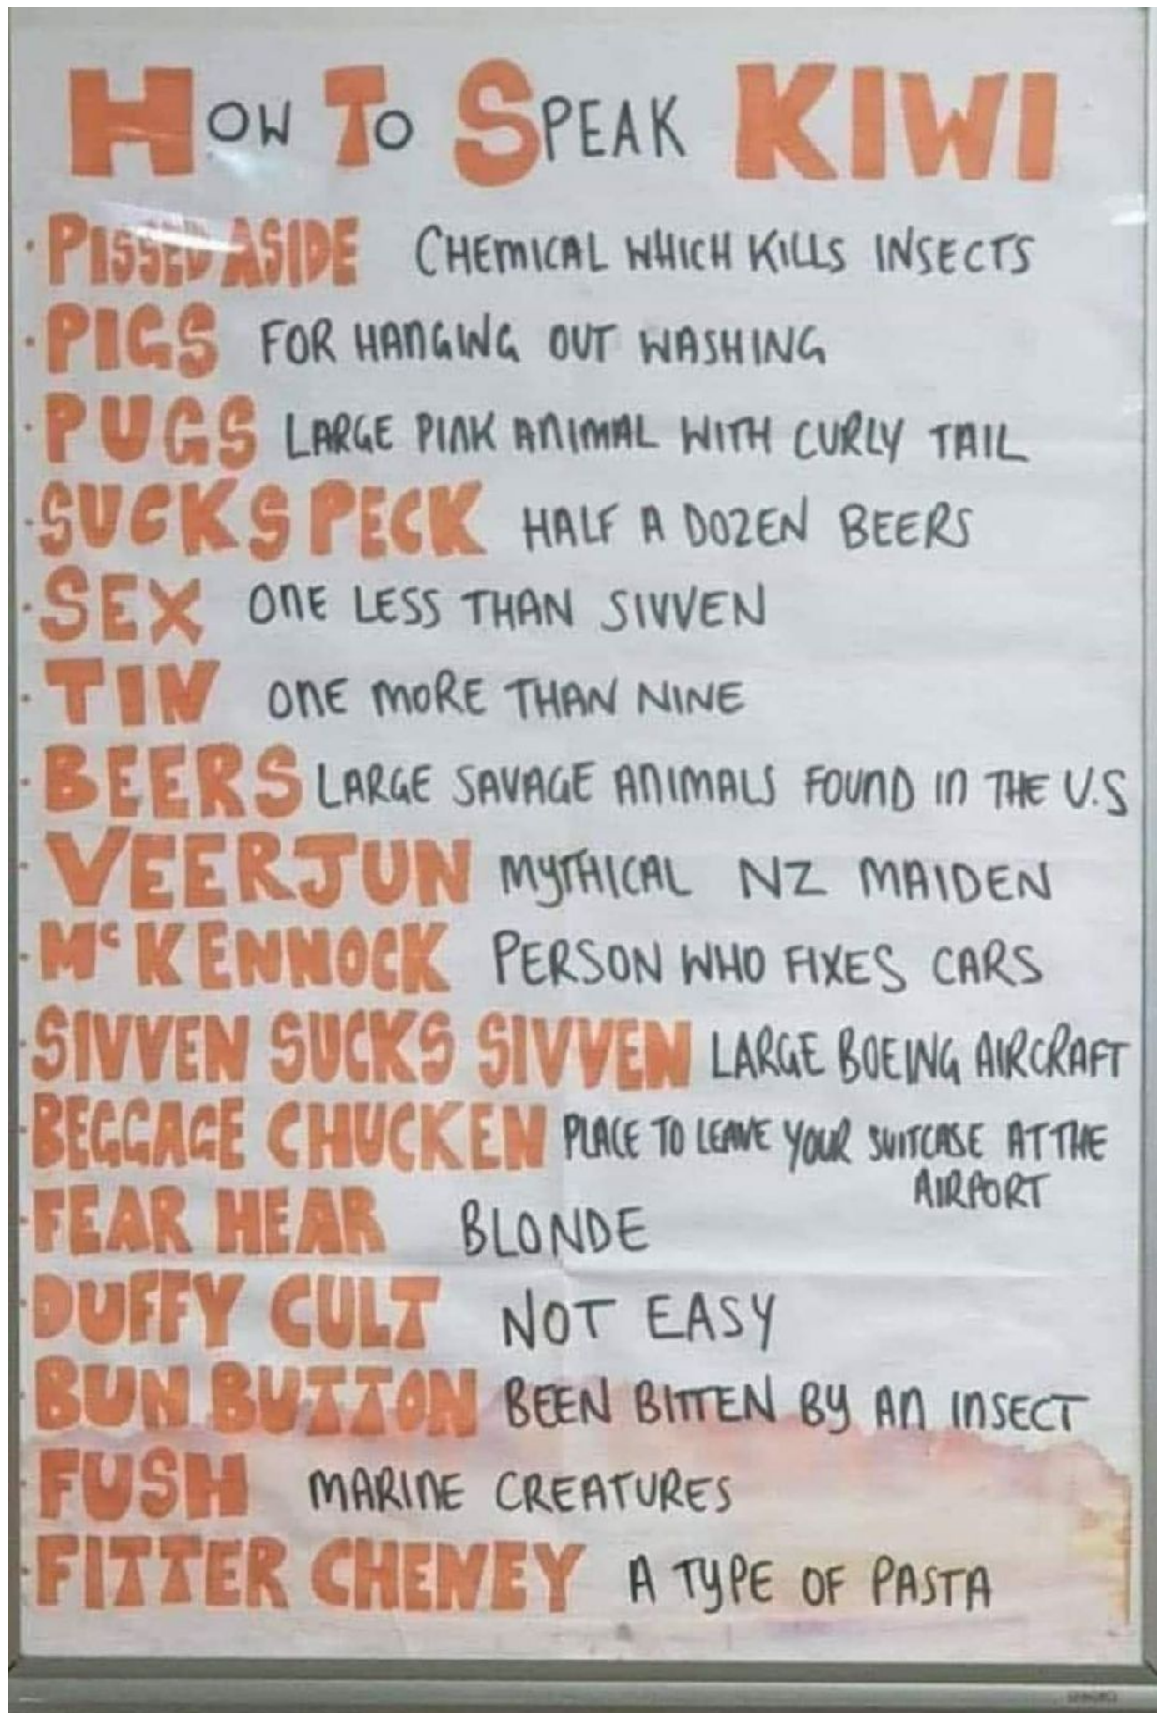 How To Speak KIWI
· PISSED ASIDE CHEMICAL WHICH KILLS INSECTS
· PIGS FOR HANGING OUT WASHING
· PUGS LARGE PINK ANIMAL WITH CURLY TAIL
· SUCKS PECK HALF A DOZEN BEERS
· SEX ONE LESS THAN SIVVEN
· TIN ONE MORE THAN NINE
· BEERS LARGE SAVAGE ANIMALS FOUND IN THE U.S
· VEERJUN MYTHICAL NZ MAIDEN
· McKENNOCK PERSON WHO FIXES CARS
· SIVVEN SUCKS SIVVEN LARGE BOEING AIRCRAFT
· BEGGAGE CHUCKEN PLACE TO LEAVE YOUR SUITCASE AT THE
AIRPORT
· FEAR HEAR BLONDE
· DUFFY CULT NOT EASY
· BUN BUTTON BEEN BITTEN BY AN INSECT
· FUSH MARINE CREATURES
· FITTER CHENEY A TYPE OF PASTA